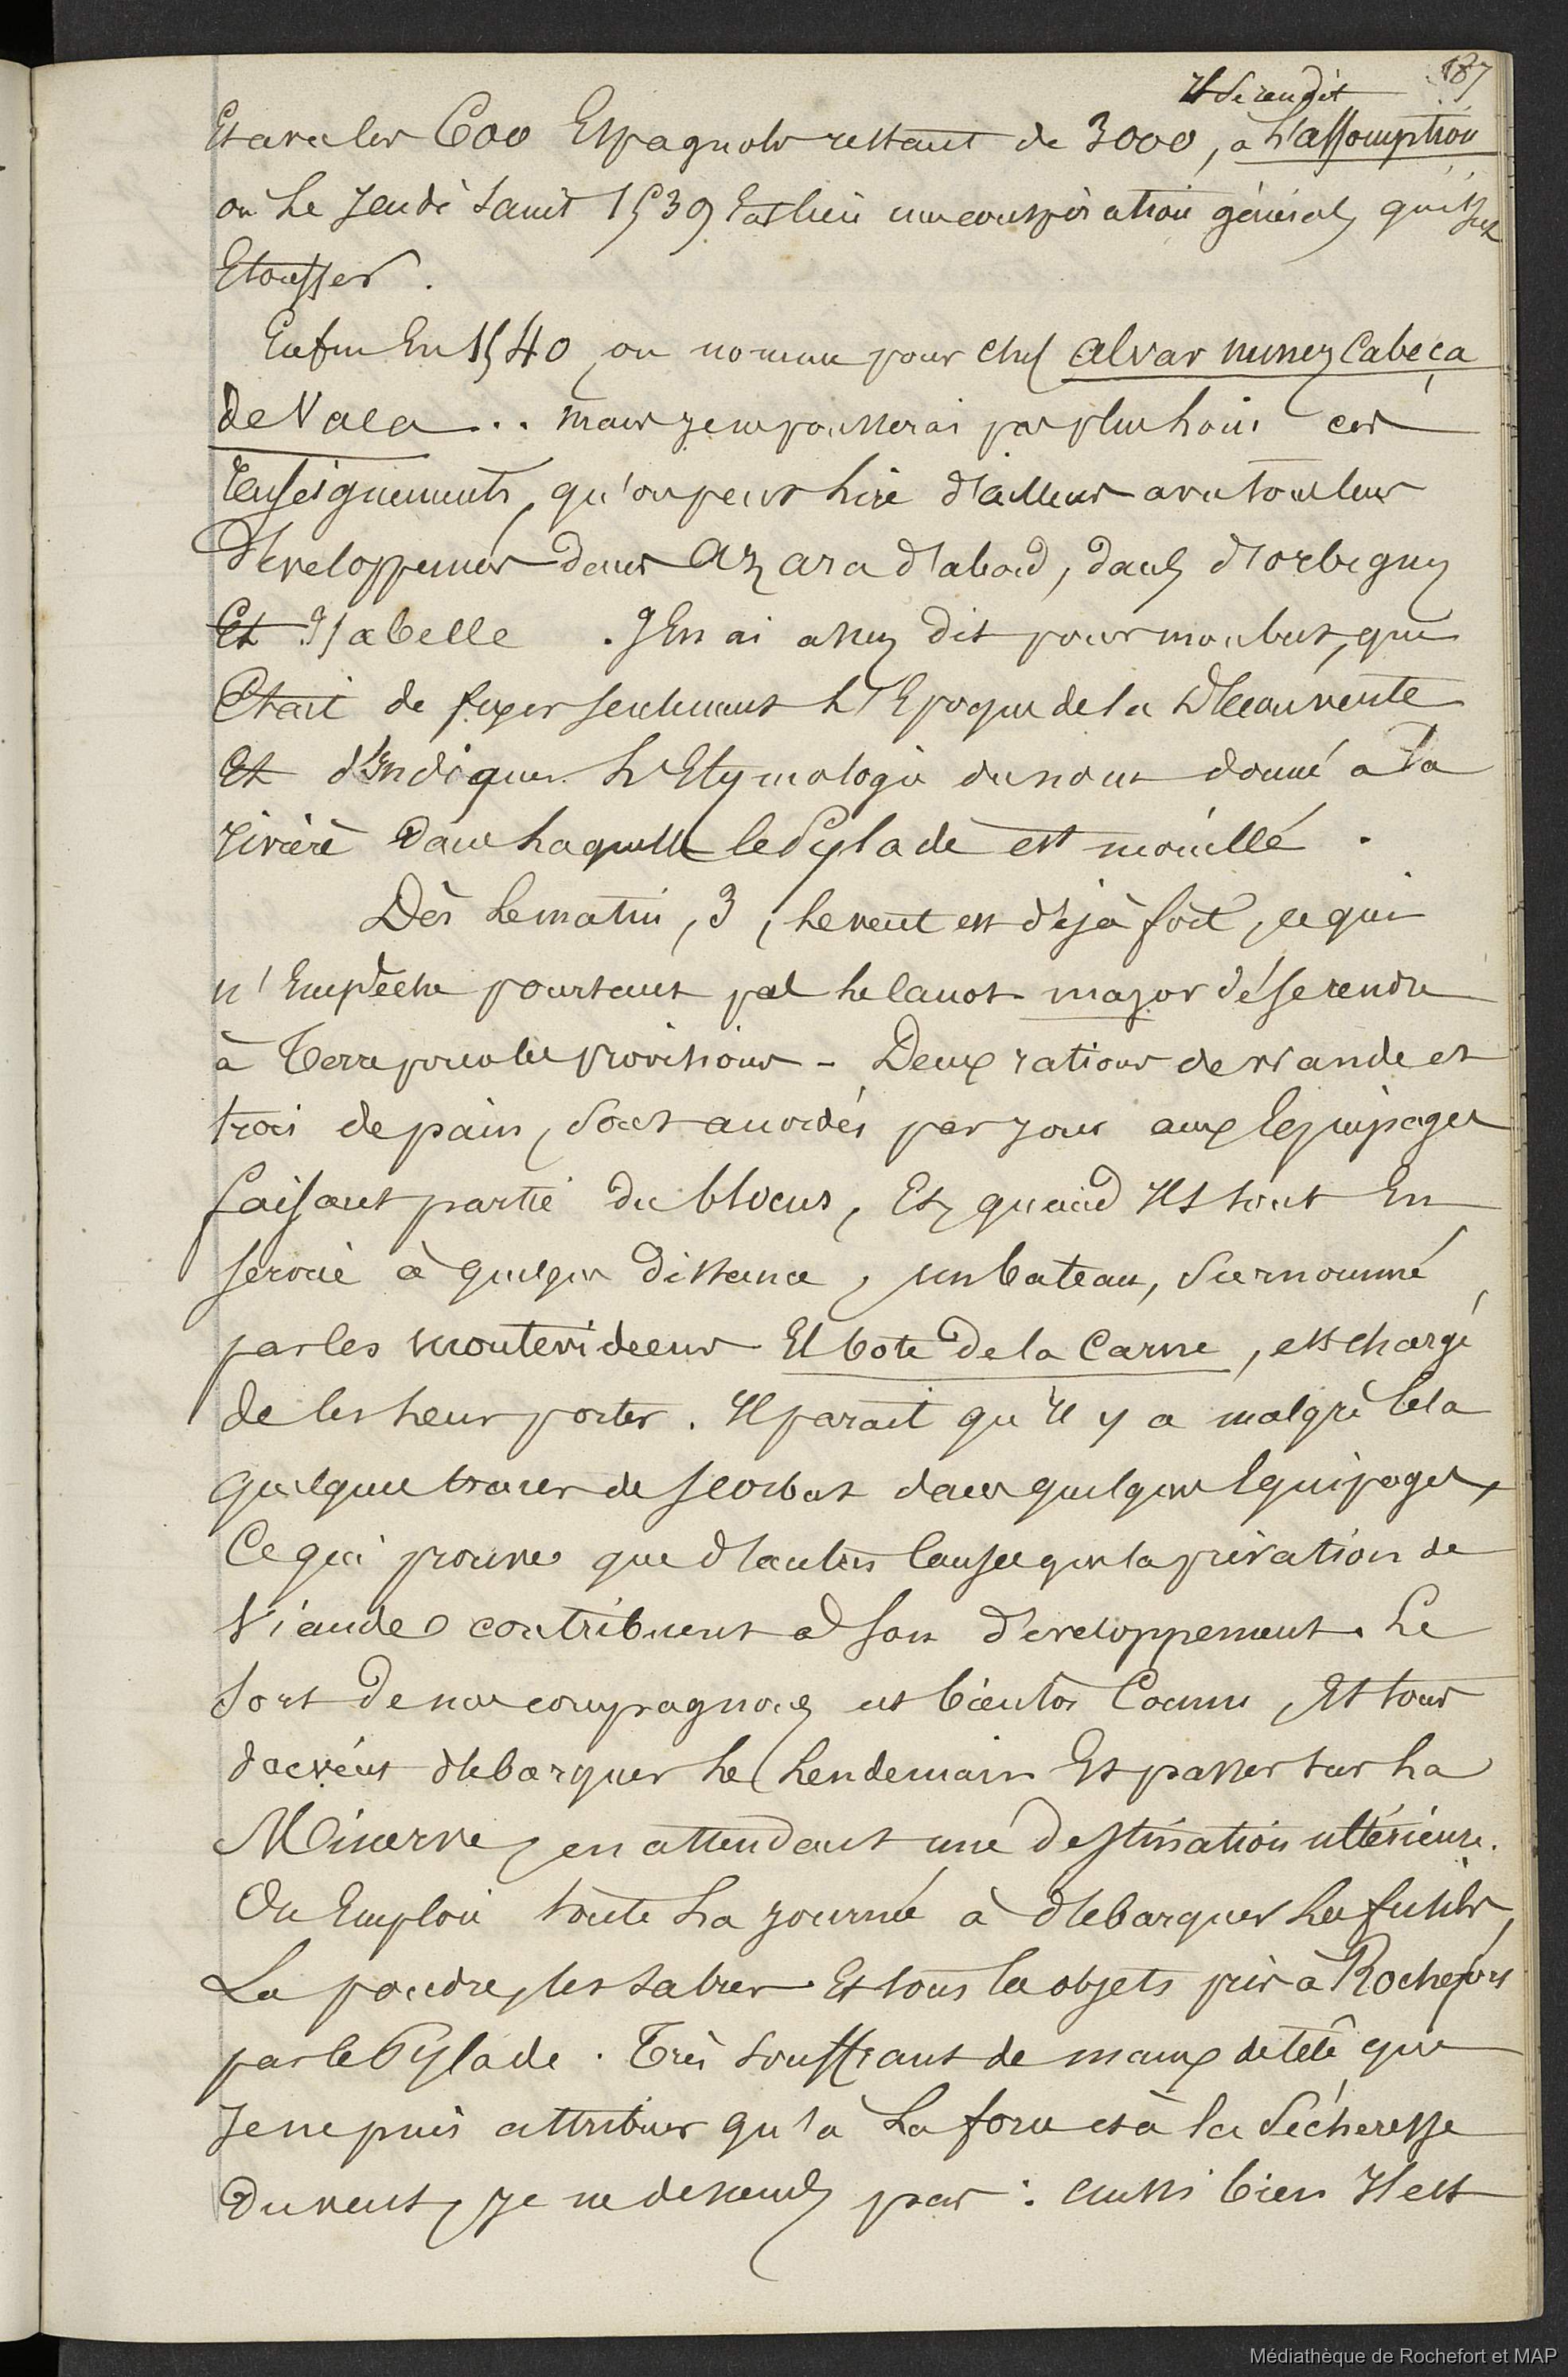 187
Il se rendit
Et avec les 600 Espagnols restant de 3000, à L'assomption
où Le Jeudi saint 1539 Eat lieu une conspiration général, qu'il sut
Etouffer.
Enfin En 1540, on nomma pour chef alvar nunez Cabeça
de Vaca... mais je ne pousserai pas plus loin ces
renseignements, qu'on peut Lire d'ailleurs avec tous leurs
développemens dans Azara d'abord, dans d'orbigny
Et Isabelle. J'En ai assez dit pour mon but, qui
Etait de fixer seulement L'Epoque de la découverte
Et d'Indiquer L'Etymologie du nom donné à la
rivière dans Laquelle le Pylade est mouillé.
Dès Le matin, 3, Le vent est déjà fort, ce qui
n'Empêche pourtant pas Le canot major de se rendre
à Terre pour les provisions - Deux rations de viande et
trois de pain, sont accordés par jour aux Equipages
faisant partie du blocus, Et, quand Ils sont En
service à quelque distance, un bateau, surnommé
par les montevideens El bote de la Carne, est chargé
de les Leur porter. Il parait qu'Il y a malgré Cela
quelques traces de scorbut dans quelques Equipages,
Ce qui prouve que d'autres Causes que la privation de
Viande contribuent à son développement. Le
sort de nos compagnons est bientôt Connu, Et tous
doivent débarquer Le Lendemain Et passer sur La
Minerve, en attendant une destination ultérieure.
On Emploie toute La journée à débarquer Les fusils,
La poudre, les sabres Et tous les objets pris à Rochefort
par le Pylade. Très souffrant de maux de tête que
Je ne puis attribuer qu'à La force et à la sécheresse
du vent, je ne descends pas : aussi bien Il est
Médiathèque de Rochefort et MAP